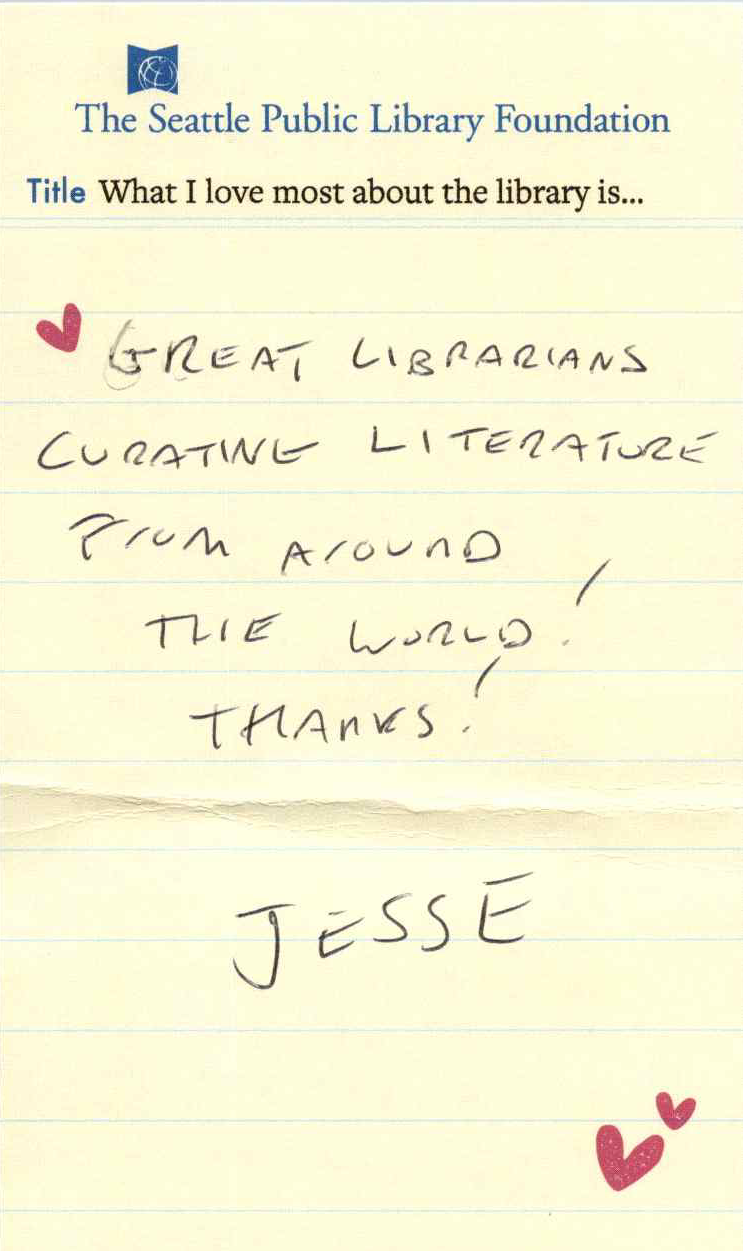 The Seattle Public Library Foundation
Title What I love most about the library is...
GREAT LIBRARIANS
CURATING LITERATURE
FROM AROUND
THE WORLD!
THANKS!
JESSE